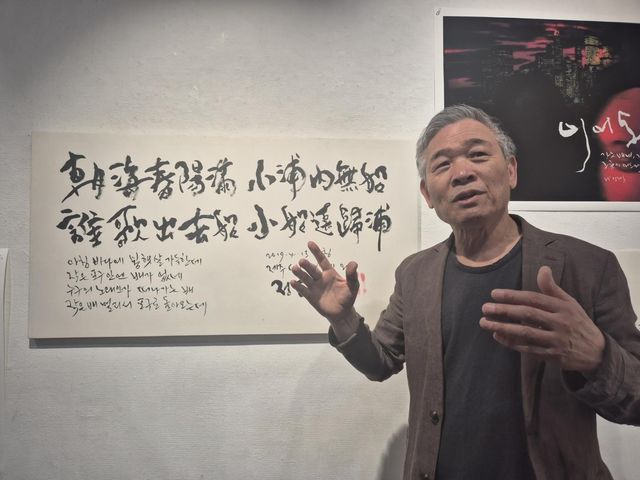 朝海春陽滿 小浦内無船
誰歌出去船 小船遠歸浦
아침 바다에 봄햇살 가득한데
작은 포구 안엔 배가 없는데
누구의 노래인가 떠나가는 배
작은배 멀리서 포구로 돌아오는데
2019. 4. 13
제주
이어도